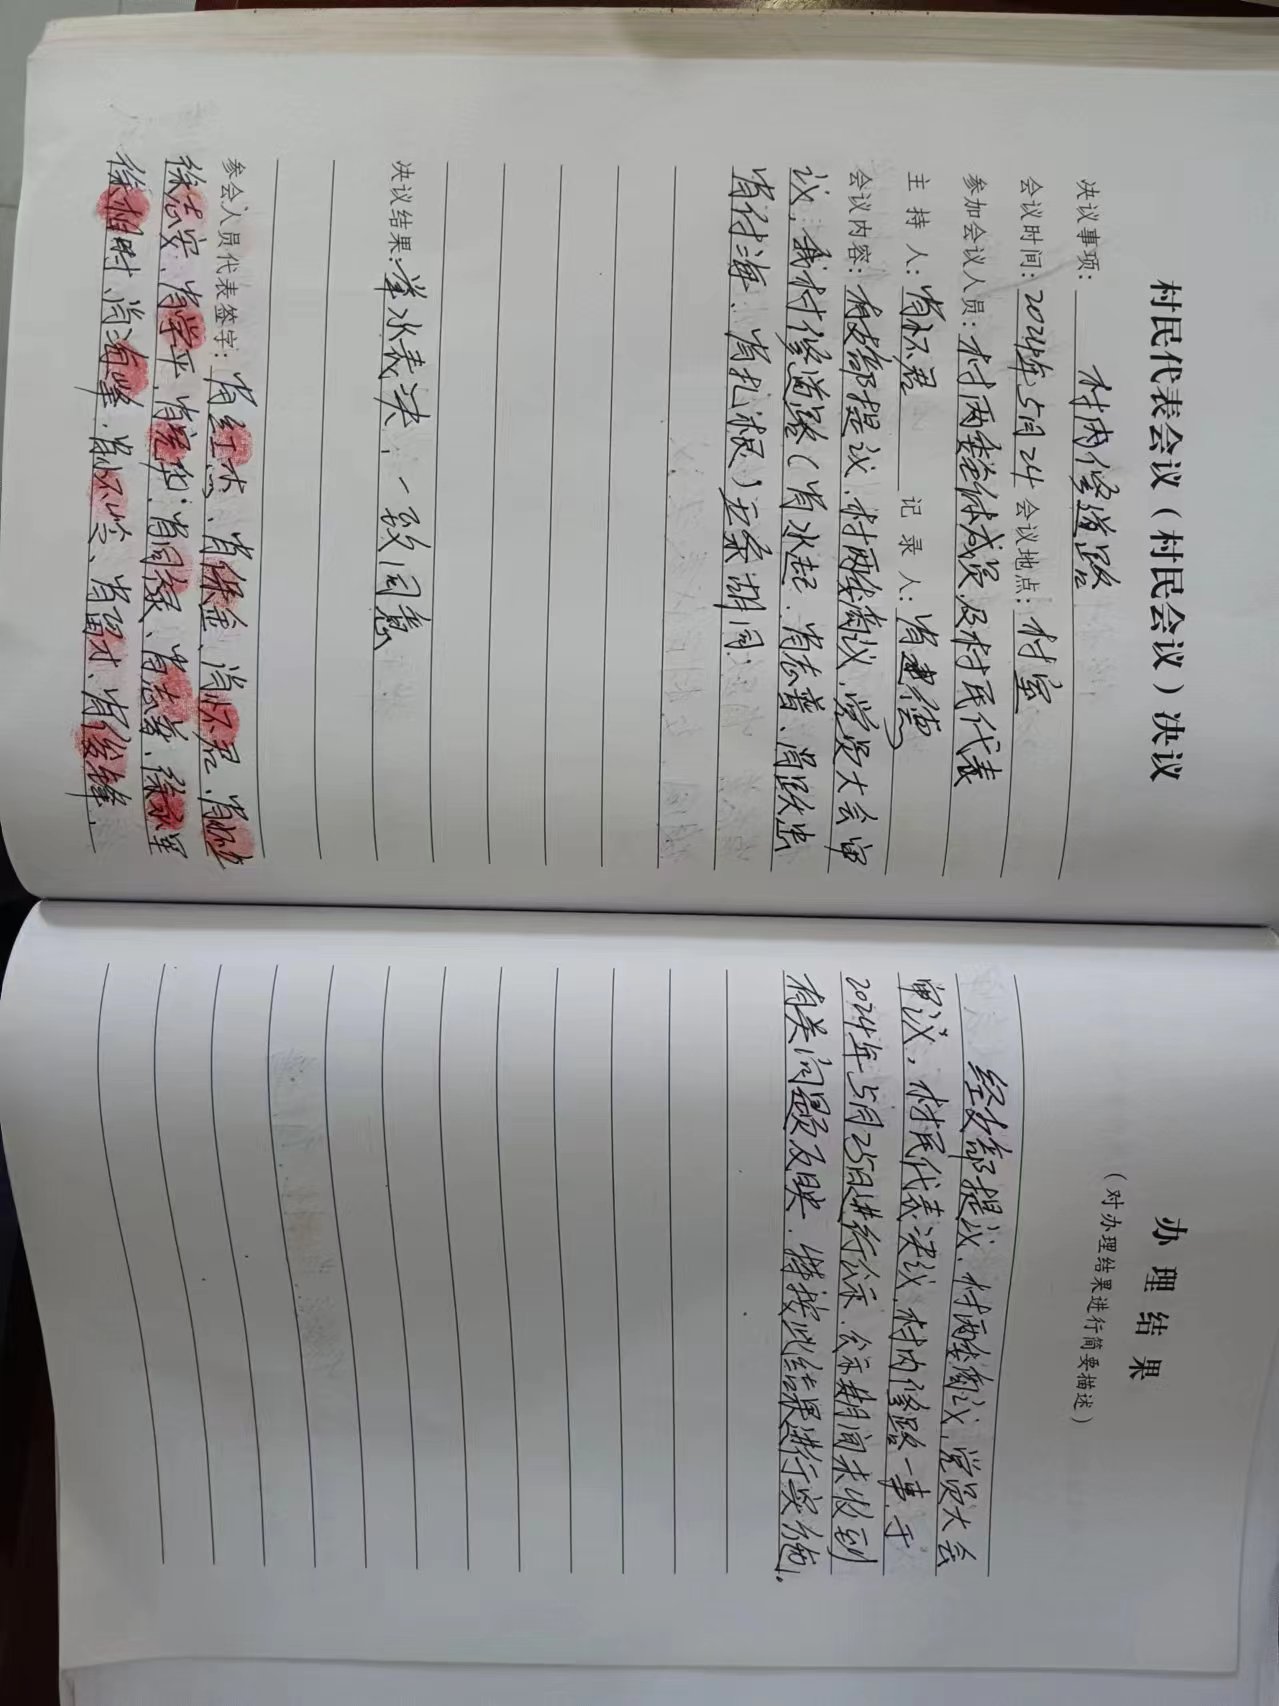 村民代表会议（村民会议）决议
决议事项：村内修道路
会议时间：2024年5月24 会议地点：村室
参加会议人员：村两委全体成员及村民代表
主持人：肖怀君 记录人：肖建德
会议内容：有支部提议，村两委商议，党员大会审
议，我村修道路（肖水起、肖志普、肖跃忠
肖付海、肖扎根）五条胡同
决议结果：举水表决，一致同意
参会人员代表签字：肖红杰、肖保金、肖怀君、
徐志安、肖学平、肖同家、肖志普、徐永军
徐相时、肖海峰、肖留才、肖俊锋、
办理结果
（对办理结果进行简要描述）
经支部提议，村两委商议，党员大会
审议，村民代表决议，村内修路一事，于
2024年5月25日进行公示，公示期间未收到
有关问题反映，将按此结果进行实施。